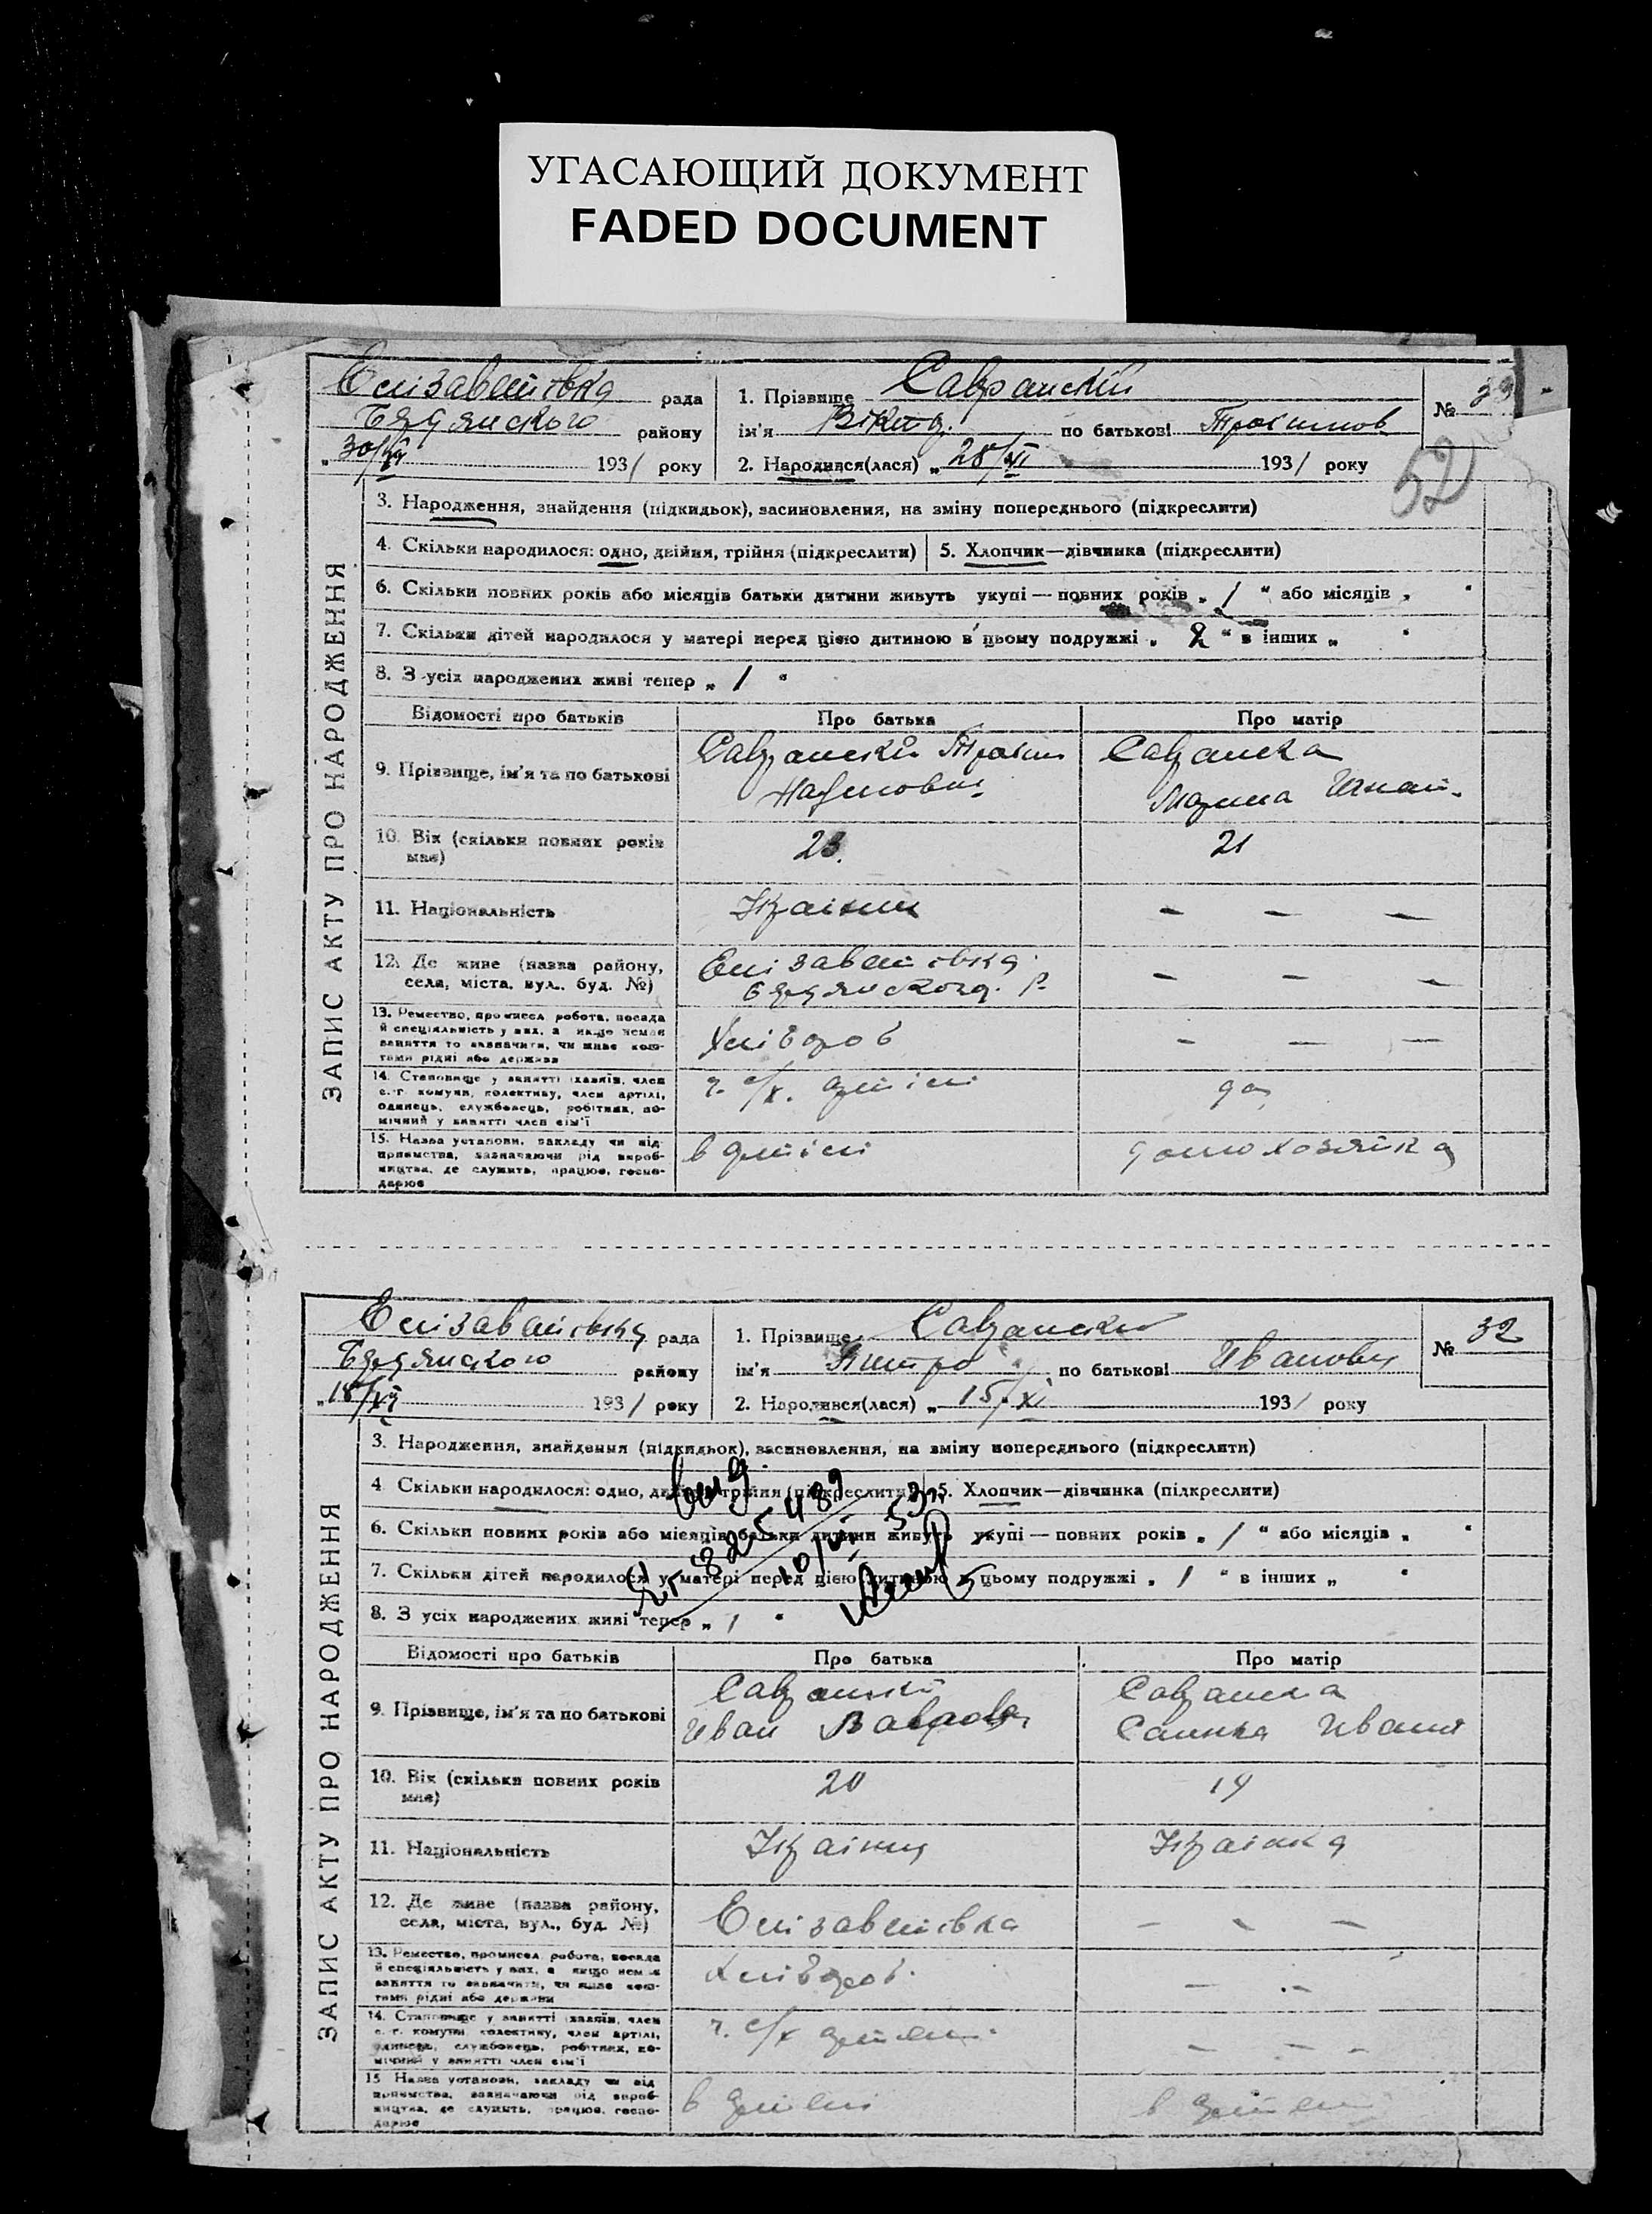 УГАСАЮЩИЙ ДОКУМЕНТ
FADED DOCUMENT
Елізаветівка рада
району
30/XII 1931 року
1. Прізвище Савранский
ім'я Віктор по батькові Трохимов
2. Народився(лася) „ 28/XI 1931 року
№
52
ЗАПИС АКТУ ПРО НАРОДЖЕННЯ
3. Народження, знайдення (підкидьок), засиновлення, на зміну попереднього (підкреслити)
4. Скільки народилося: одно, двійня, трійня (підкреслити) 5. Хлопчик—дівчинка (підкреслити)
6. Скільки повних років або місяців батьки дитини живуть укупі — повних років „ 1 “ або місяців „ “
7. Скільки дітей народилося у матері перед цією дитиною в цьому подружжі „ 2 “ в інших „ “
8. З усіх народжених живі тепер „ 1 “
Відомості про батьків Про батька Про матір
9. Прізвище, ім'я та по батькові
Савранский Трохим
Наумович
Савранска
Марина
10. Вік (скільки повних років має) 23. 21
11. Національність Українец — — —
12. Де живе (назва району, села, міста, вул., буд. №)
Елізаветівка
— — —
13. Ремество, промисел робота, посада
й спеціяльність у них, а якщо немає
заняття то зазначити, чи живе кош-
тами рідні або держави
Хлібороб — — —
14. Становище у занятті хазяїн, член
с.-г. комуни, колективу, член артілі,
одинець, службовець, робітник, по-
мічний у занятті член сім'ї
ч. с/х. артілі
15. Назва установи, закладу чи під-
приємства, зазначаючи рід вироб-
ництва, де служить, працює, госпо-
дарює
в артілі домохозяйка
Елізаветівка рада
району
18/XII 1931 року
1. Прізвище Савранский
ім'я по батькові Иванович
2. Народився(лася) „ 15/XI 1931 року
№ 32
ЗАПИС АКТУ ПРО НАРОДЖЕННЯ
3. Народження, знайдення (підкидьок), засиновлення, на зміну попереднього (підкреслити)
4 Скільки народилося: одно, двійня, трійня (підкреслити) 5. Хлопчик—дівчинка (підкреслити)
6. Скільки повних років або місяців батьки дитини живуть укупі — повних років „ 1 “ або місяців „ “
7. Скільки дітей народилося у матері перед цією дитиною в цьому подружжі „ 1 “ в інших „ “
8. З усіх народжених живі тепер „ 1 “
Відомості про батьків Про батька Про матір
9. Прізвище, ім'я та по батькові
Савранский
Иван
Савранска
Иванов
10. Вік (скільки повних років має) 20 19
11. Національність Українец Українка
12. Де живе (назва району, села, міста, вул., буд. №) Елізаветівка — — —
13. Ремество, промисел, робота, посада
й спеціяльність у них, а якщо немає
заняття то зазначити, чи живе кош-
тами рідні або держави
Хлібороб — —
14. Становище у занятті хазяїн, член
с.-г. комуни колективу, член артілі,
одинець, службовець, робітник, по-
мічний у занятті член сім'ї
ч. с/х артілі — — —
15 Назва установи, закладу чи під-
приємства, зазначаючи рід вироб-
ництва, де служить, працює, госпо-
дарює
в артілі в артілі